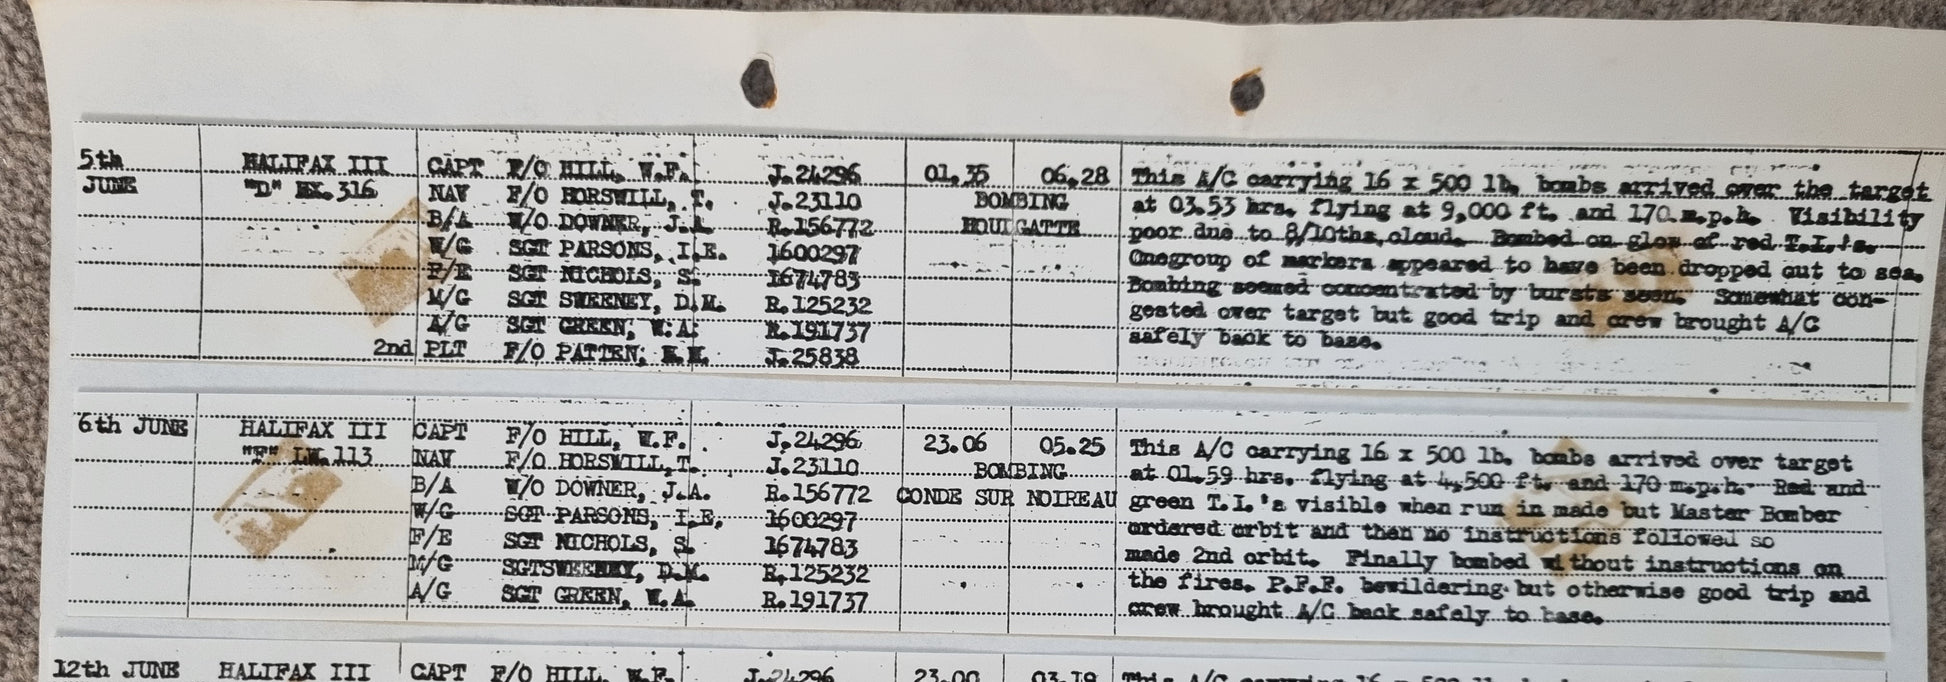 5th HALIFAX III CAPT F/O HILL, W.F. J.24296 01.35 06.28 This A/C carrying 16 x 500 lb. bombs arrived over the target
JUNE "D" 316 NAV F/O HORSWILL, T. J.23110 BOMBING at 03.53 hrs. flying at 9,000 ft. and 170 m.p.h. Visibility
B/A W/O DOWNER, J.A. R.156772 HOULGATTE poor due to 8/10ths,cloud. Bombed on glow of red T.I.'s.
W/G SGT PARSONS, I.E. 1600297 Onegroup of markers appeared to have been dropped out to sea.
F/E SGT NICHOLS, S. 1674783 Bombing seemed concentrated by bursts seen. Somewhat con-
M/G SGT SWEENEY, D.M. R.125232 gested over target but good trip and crew brought A/C
A/G SGT GREEN, W.A. R.191737 safely back to base.
2nd PLT F/O PATTEN, J.25838
6th JUNE HALIFAX III CAPT F/O HILL, W.F. J.24296 23.06 05.25 This A/C carrying 16 x 500 lb. bombs arrived over target
LW.113 NAV F/O HORSWILL,T. J.23110 BOMBING at 01.59 hrs. flying at 4,500 ft. and 170 m.p.h. Red and
B/A W/O DOWNER, J.A. R.156772 CONDE SUR NOIREAU green T.I.'s visible when run in made but Master Bomber
W/G SGT PARSONS, I.E. 1600297 ordered orbit and then no instructions followed so
F/E SGT NICHOLS, S. 1674783 made 2nd orbit. Finally bombed without instructions on
M/G SGTSWEENEY, D.M. R.125232 the fires. P.F.F. bewildering but otherwise good trip and
A/G SGT GREEN, W.A. R.191737 crew brought A/C back safely to base.
12th JUNE HALIFAX III CAPT F/O HILL, W.F. J.24296 23.00 03.19 This A/C carrying 16 x 500 lb.